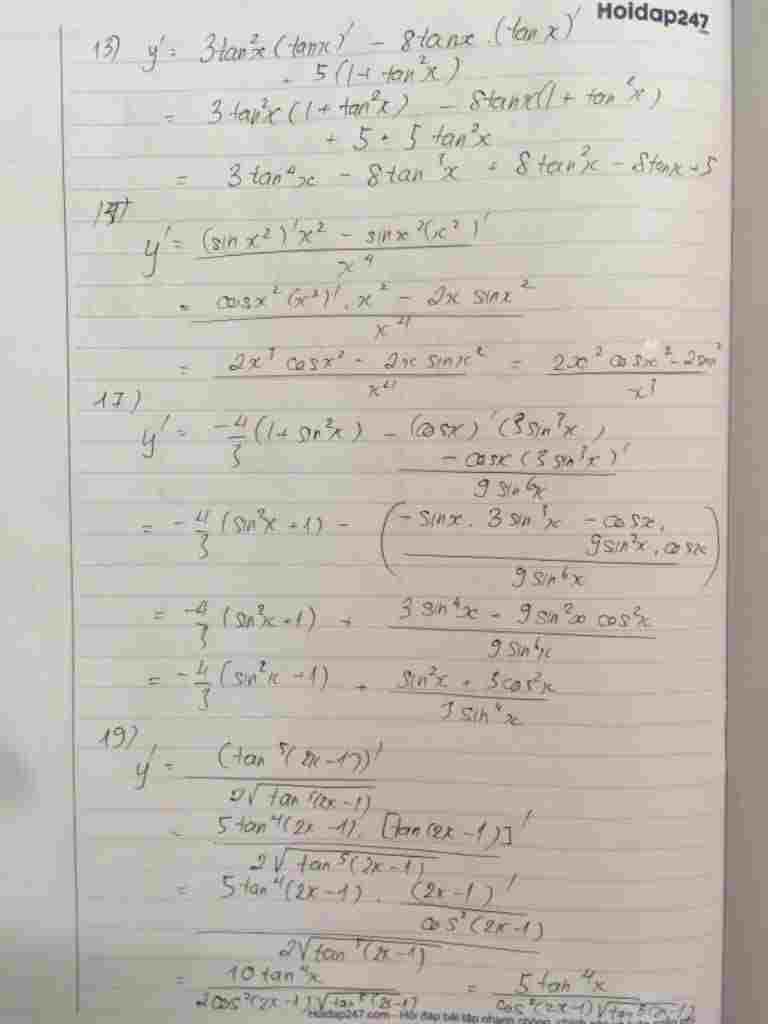 Hoidap247
13) y' = 3tan²x (tanx)' - 8tanx.(tanx)'
+ 5(1+tan²x)
= 3tan²x(1+tan²x) - 8tanx(1+tan²x)
+ 5 + 5tan²x
= 3tan⁴x - 8tan³x + 8tan²x - 8tanx+5
y' = ((sinx²)'x² - sinx²(x²)')/x⁴
= (cosx²(x²)'.x² - 2x sinx²)/x⁴
= (2x³cosx² - 2x sinx²)/x⁴ = (2x²cosx² - 2sinx²)/x³
17)
y' = -4/3(1+sin²x) - ((cosx)'(3sin³x) - cosx(3sin³x)')/(9sin⁶x)
= -4/3(sin²x+1) - ((-sinx.3sin³x - cosx.9sin²x.cosx)/(9sin⁶x))
= -4/3(sin²x+1) + (3sin⁴x - 9sin²x cos²x)/(9sin⁶x)
= -4/3(sin²x+1) + (sin²x + 3cos²x)/(3sin⁴x)
19)
y' = (tan⁵(2x-1))'/(2√tan⁵(2x-1))
= (5tan⁴(2x-1).[tan(2x-1)]')/(2√tan⁵(2x-1))
= (5tan⁴(2x-1).(2x-1)'/cos²(2x-1))/(2√tan⁵(2x-1))
= (10tan⁴x)/(2cos²(2x-1)√tan⁵(2x-1)) = (5tan⁴x)/(cos²(2x-1)√tan⁵(2x-1))
Hoidap247.com - Hỏi đáp bài tập nhanh chóng, chính